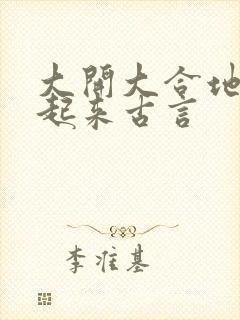 大開大合地
起来古言
李准基